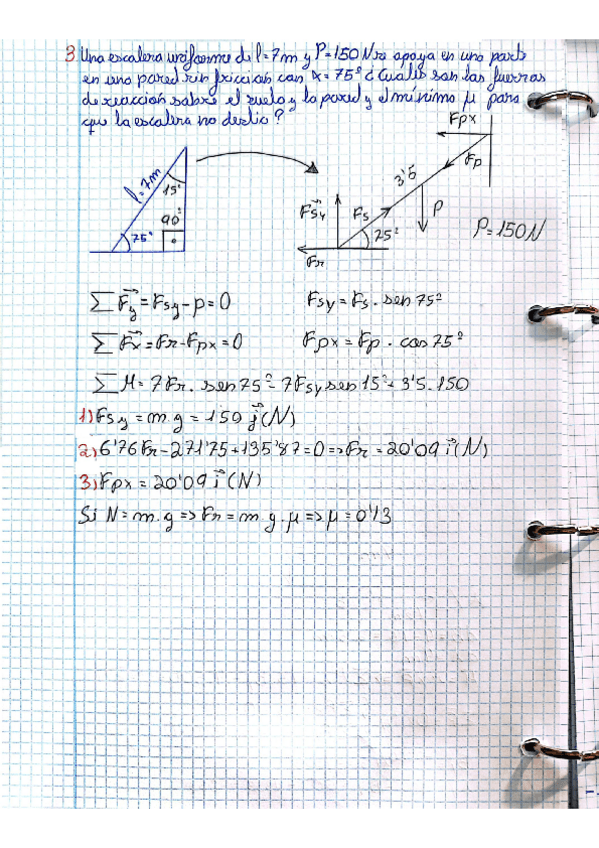 3. Una escalera uniforme de l=7m y P=150N se apoya en una pared
en una pared sin friccion con α=75º ¿Cuales son las fuerzas
de reacción sobre el suelo y la pared y el mínimo μ para
que la escalera no deslice?
l=7m
15º
90º
75º
Fpx
Fp
3'5
Fsy
Fs
P
25º
Fr
P=150N
∑Fy = Fsy - p = 0    Fsy = Fs . sen 75º
∑Fx = Fr - Fpx = 0    Fpx = Fp . cos 75º
∑M = 7Fr . sen 75º - 7Fsy sen 15º + 3'5 . 150
1) Fsy = m.g = 150 j (N)
2) 6'76 Fr - 271'75 + 135'87 = 0 => Fr = 20'09 i (N)
3) Fpx = 20'09 i (N)
Si N = m.g => Fr = m.g.μ => μ = 0'13